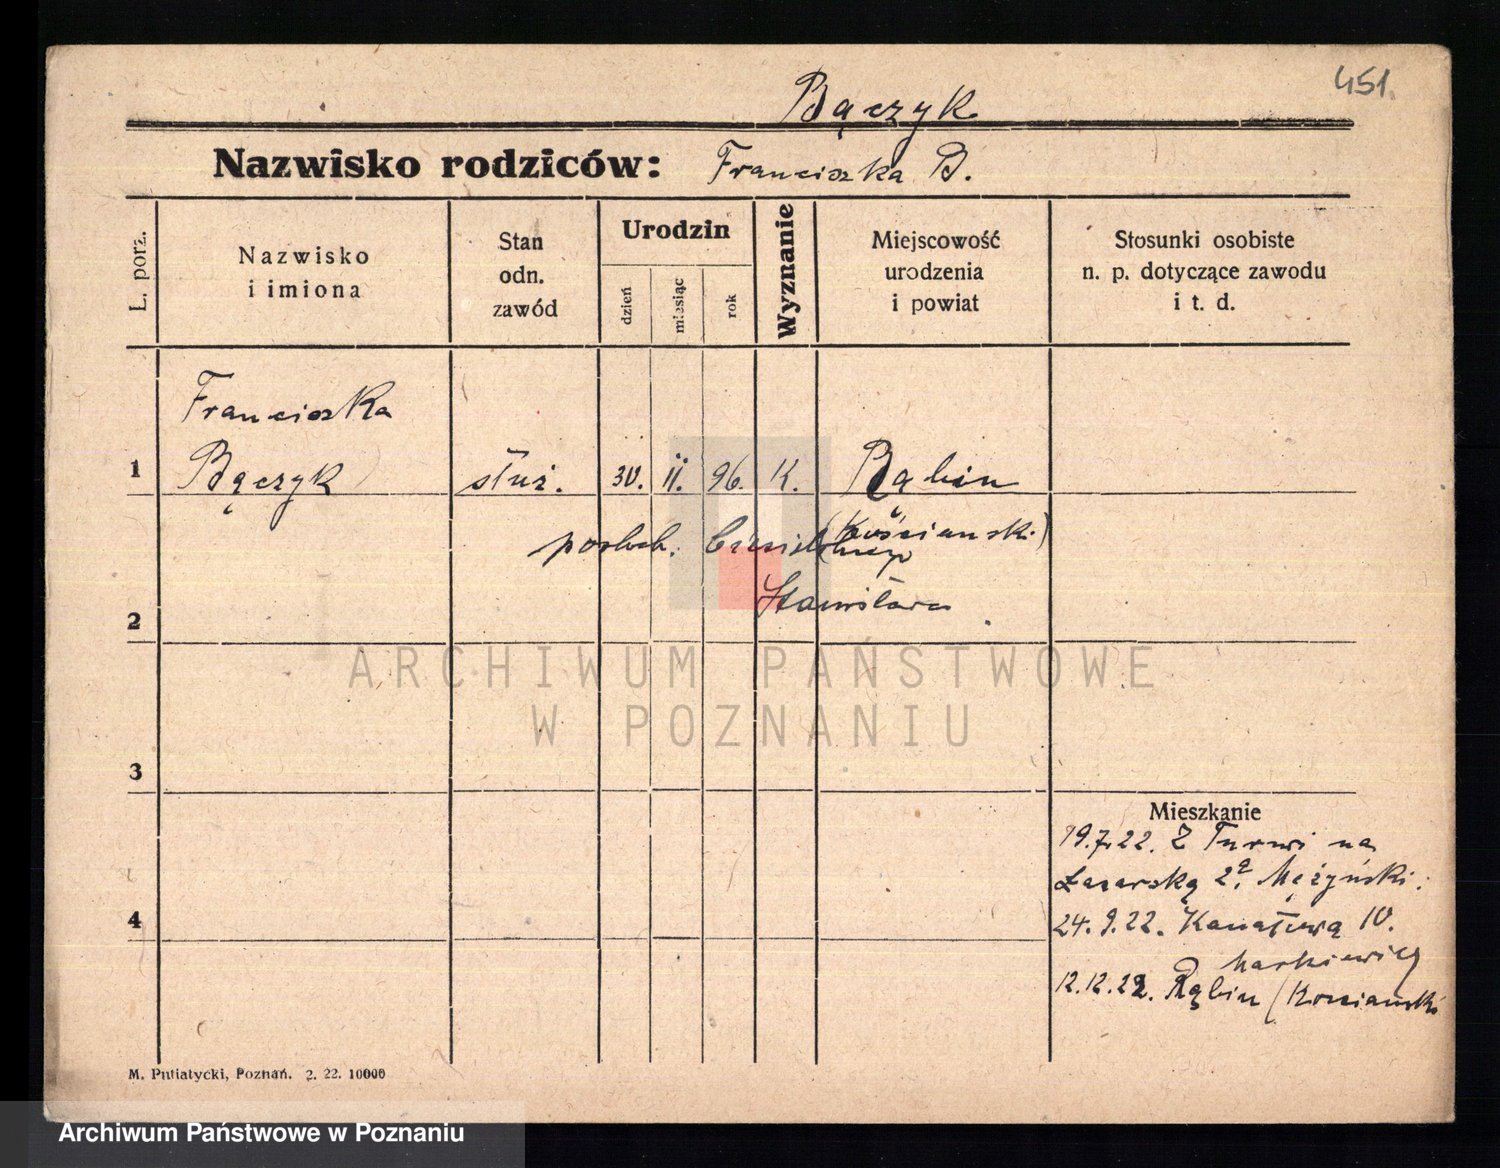 451.
Bączyk
Nazwisko rodziców: Franciszka B.
L. porz.
Nazwisko
i imiona
Stan
odn.
zawód
Urodzin
dzień
miesiąc
rok
Wyznanie
Miejscowość
urodzenia
i powiat
Stosunki osobiste
n. p. dotyczące zawodu
i t. d.
Franciszka
1 Bączyk służ. 30. II. 96. K. Rąbin
(Kościanski)
Stanisława
2
ARCHIWUM PAŃSTWOWE
W POZNANIU
3
Mieszkanie
19.7.22. Z Turwi na
Łazarską 2a. Mężyński:
4
24.9.22. Kanałową 10.
Markiewicz
12.12.22. Rąbin (Kosciański
M. Putiatycki, Poznań. 2. 22. 10000
Archiwum Państwowe w Poznaniu